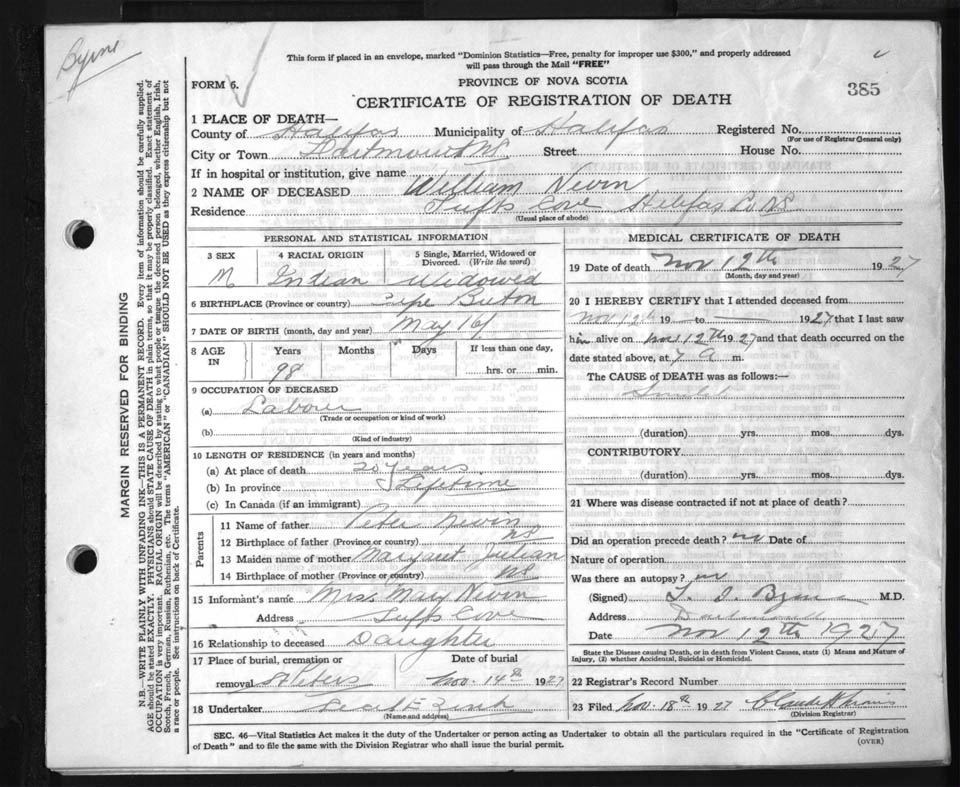 Byrne
This form if placed in an envelope, marked "Dominion Statistics—Free, penalty for improper use $300," and properly addressed
will pass through the Mail "FREE"
FORM 6.
PROVINCE OF NOVA SCOTIA
385
CERTIFICATE OF REGISTRATION OF DEATH
1 PLACE OF DEATH—
County of Halifax Municipality of Halifax Registered No.
(For use of Registrar General only)
City or Town Dartmouth NS Street House No.
If in hospital or institution, give name
2 NAME OF DECEASED William Nevin
Residence Tuffs Cove Halifax Co NS
(Usual place of abode)
PERSONAL AND STATISTICAL INFORMATION
3 SEX 4 RACIAL ORIGIN 5 Single, Married, Widowed or Divorced. (Write the word)
M Indian Widowed
6 BIRTHPLACE (Province or country) Cape Breton
7 DATE OF BIRTH (month, day and year) May 16
8 AGE IN Years Months Days If less than one day,
98 hrs. or min.
9 OCCUPATION OF DECEASED
(a) Laborer
(Trade or occupation or kind of work)
(b)
(Kind of industry)
10 LENGTH OF RESIDENCE (in years and months)
(a) At place of death 20 years
(b) In province Lifetime
(c) In Canada (if an immigrant)
Parents
11 Name of father Peter Nevin
12 Birthplace of father (Province or country) NS
13 Maiden name of mother Margaret Julian
14 Birthplace of mother (Province or country) NS
15 Informant's name Mrs. Mary Nevin
Address Tuffs Cove
16 Relationship to deceased Daughter
17 Place of burial, cremation or removal St Peters
Date of burial Nov. 14th 1927
18 Undertaker
(Name and address)
MEDICAL CERTIFICATE OF DEATH
19 Date of death Nov 12th 1927
(Month, day and year)
20 I HEREBY CERTIFY that I attended deceased from
Nov 12th 19 to 1927 that I last saw
him alive on Nov. 12th 1927 and that death occurred on the
date stated above, at 7 a m.
The CAUSE of DEATH was as follows:—
(duration) yrs. mos. dys.
CONTRIBUTORY
(duration) yrs. mos. dys.
21 Where was disease contracted if not at place of death?
Did an operation precede death? no Date of
Nature of operation
Was there an autopsy? no
(Signed) Byrne M.D.
Address Dartmouth
Date Nov 12th 1927
State the Disease causing Death, or in death from Violent Causes, state (1) Means and Nature of
Injury, (2) whether Accidental, Suicidal or Homicidal.
22 Registrar's Record Number
23 Filed Nov. 18th 1927
(Division Registrar)
SEC. 46—Vital Statistics Act makes it the duty of the Undertaker or person acting as Undertaker to obtain all the particulars required in the "Certificate of Registration
of Death" and to file the same with the Division Registrar who shall issue the burial permit.
(OVER)
MARGIN RESERVED FOR BINDING
N.B.—WRITE PLAINLY WITH UNFADING INK—THIS IS A PERMANENT RECORD. Every item of information should be carefully supplied.
AGE should be stated EXACTLY. PHYSICIANS should STATE CAUSE OF DEATH in plain terms, so that it may be properly classified. Exact statement of
OCCUPATION is very important. RACIAL ORIGIN will be described by stating to what people or tongue the deceased person belonged, whether English, Irish,
Scotch, French, German, Russian, Ruthenian, etc. The terms "AMERICAN" or "CANADIAN" SHOULD NOT BE USED as they express citizenship but not
a race or people. See instructions on back of Certificate.